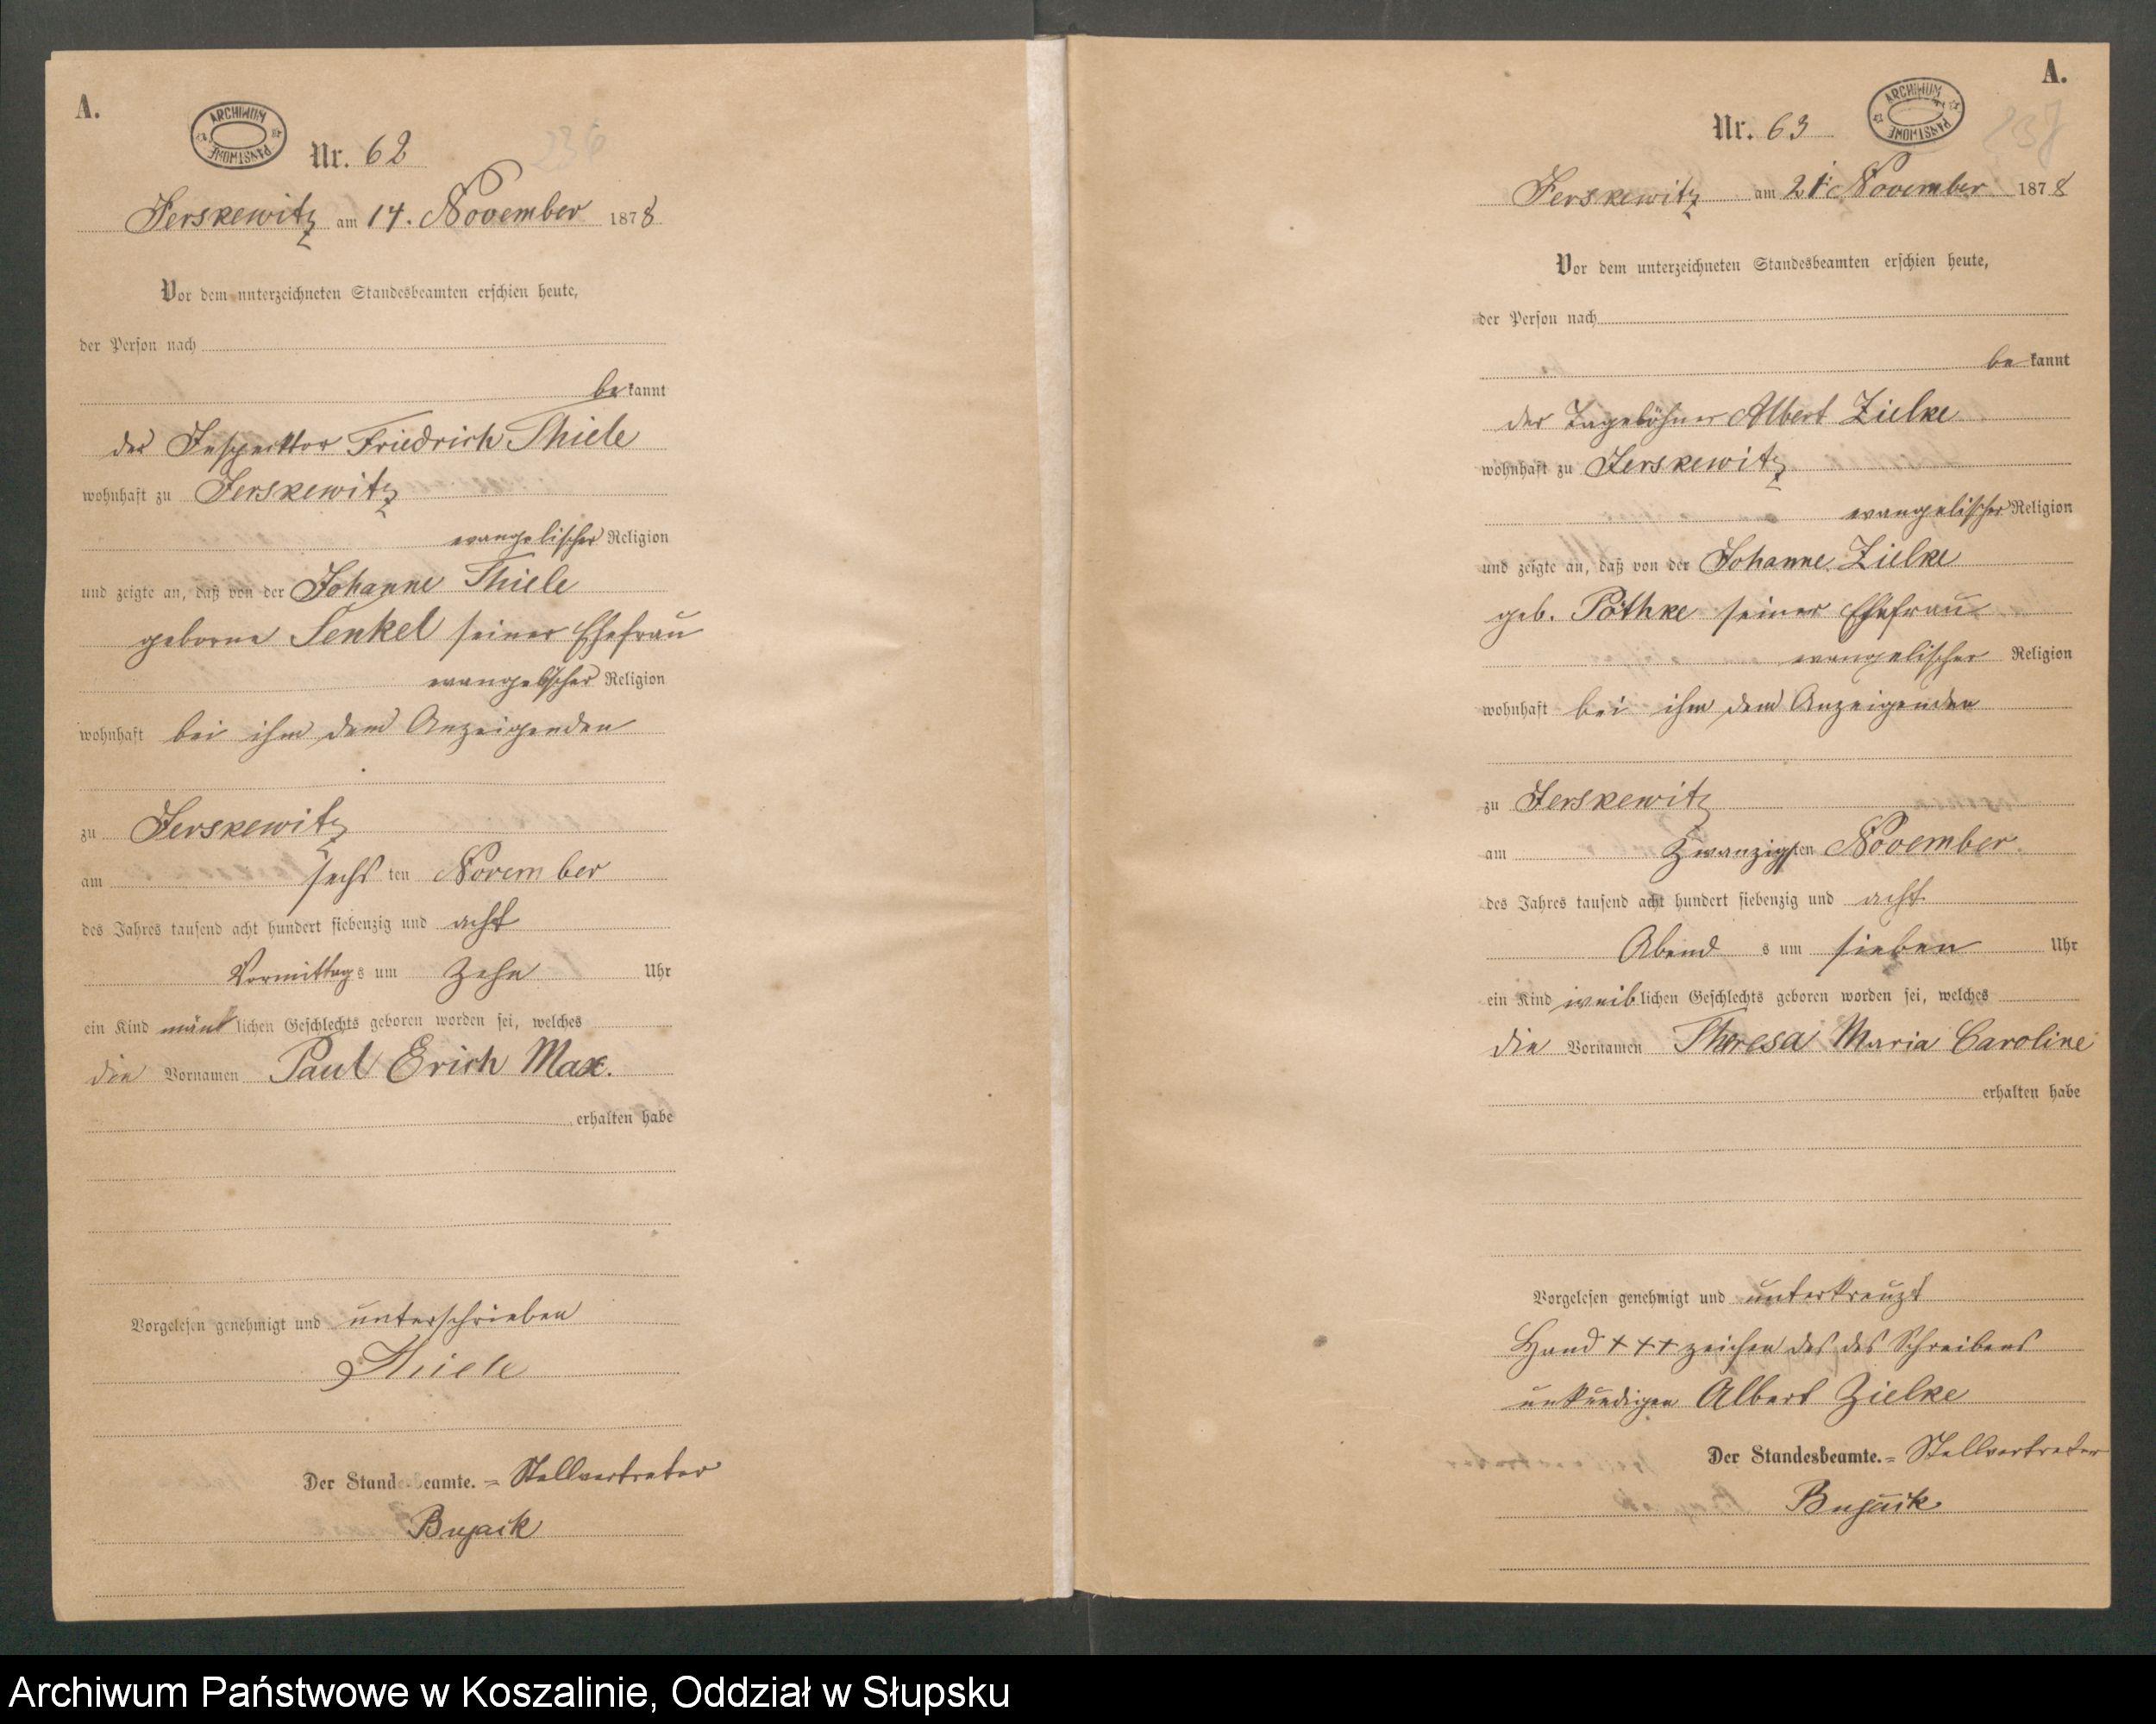 A.
ARCHIWUM PAŃSTWOWE
Nr. 62
236
Jerskewitz am 14. November 1878
Vor dem unterzeichneten Standesbeamten erschien heute,
der Person nach
be kannt
der Inspecktor Friedrich Thiele
wohnhaft zu Jerskewitz
evangelischer Religion
und zeigte an, daß von der Johanne Thiele
geborne Senkel seiner Ehefrau
evangelischer Religion
wohnhaft bei ihm dem Anzeigenden
zu Jerskewitz
am sechs ten November
des Jahres tausend acht hundert siebenzig und acht
Vormittag s um Zehn Uhr
ein Kind mänlichen Geschlechts geboren worden sei, welches
die Vornamen Paul Erich Max.
erhalten habe
Vorgelesen genehmigt und unterschrieben
Thiele
Der Standesbeamte. = Stellvertreter
Bujack
A.
ARCHIWUM PAŃSTWOWE
Nr. 63
237
Jerskewitz am 21t November 1878
Vor dem unterzeichneten Standesbeamten erschien heute,
der Person nach
be kannt
der Tagelöhner Albert Zielke
wohnhaft zu Jerskewitz
evangelischer Religion
und zeigte an, daß von der Johanne Zielke
geb. Pöthke seiner Ehefrau
evangelischer Religion
wohnhaft bei ihm dem Anzeigenden
zu Jerskewitz
am Zwanzigsten November
des Jahres tausend acht hundert siebenzig und acht
Abend s um sieben Uhr
ein Kind weiblichen Geschlechts geboren worden sei, welches
die Vornamen Theresa Maria Caroline
erhalten habe
Vorgelesen genehmigt und unterkreuzt
Hand +++ zeichen des des Schreibens
unkundigen Albert Zielke
Der Standesbeamte. = Stellvertreter
Bujack
Archiwum Państwowe w Koszalinie, Oddział w Słupsku